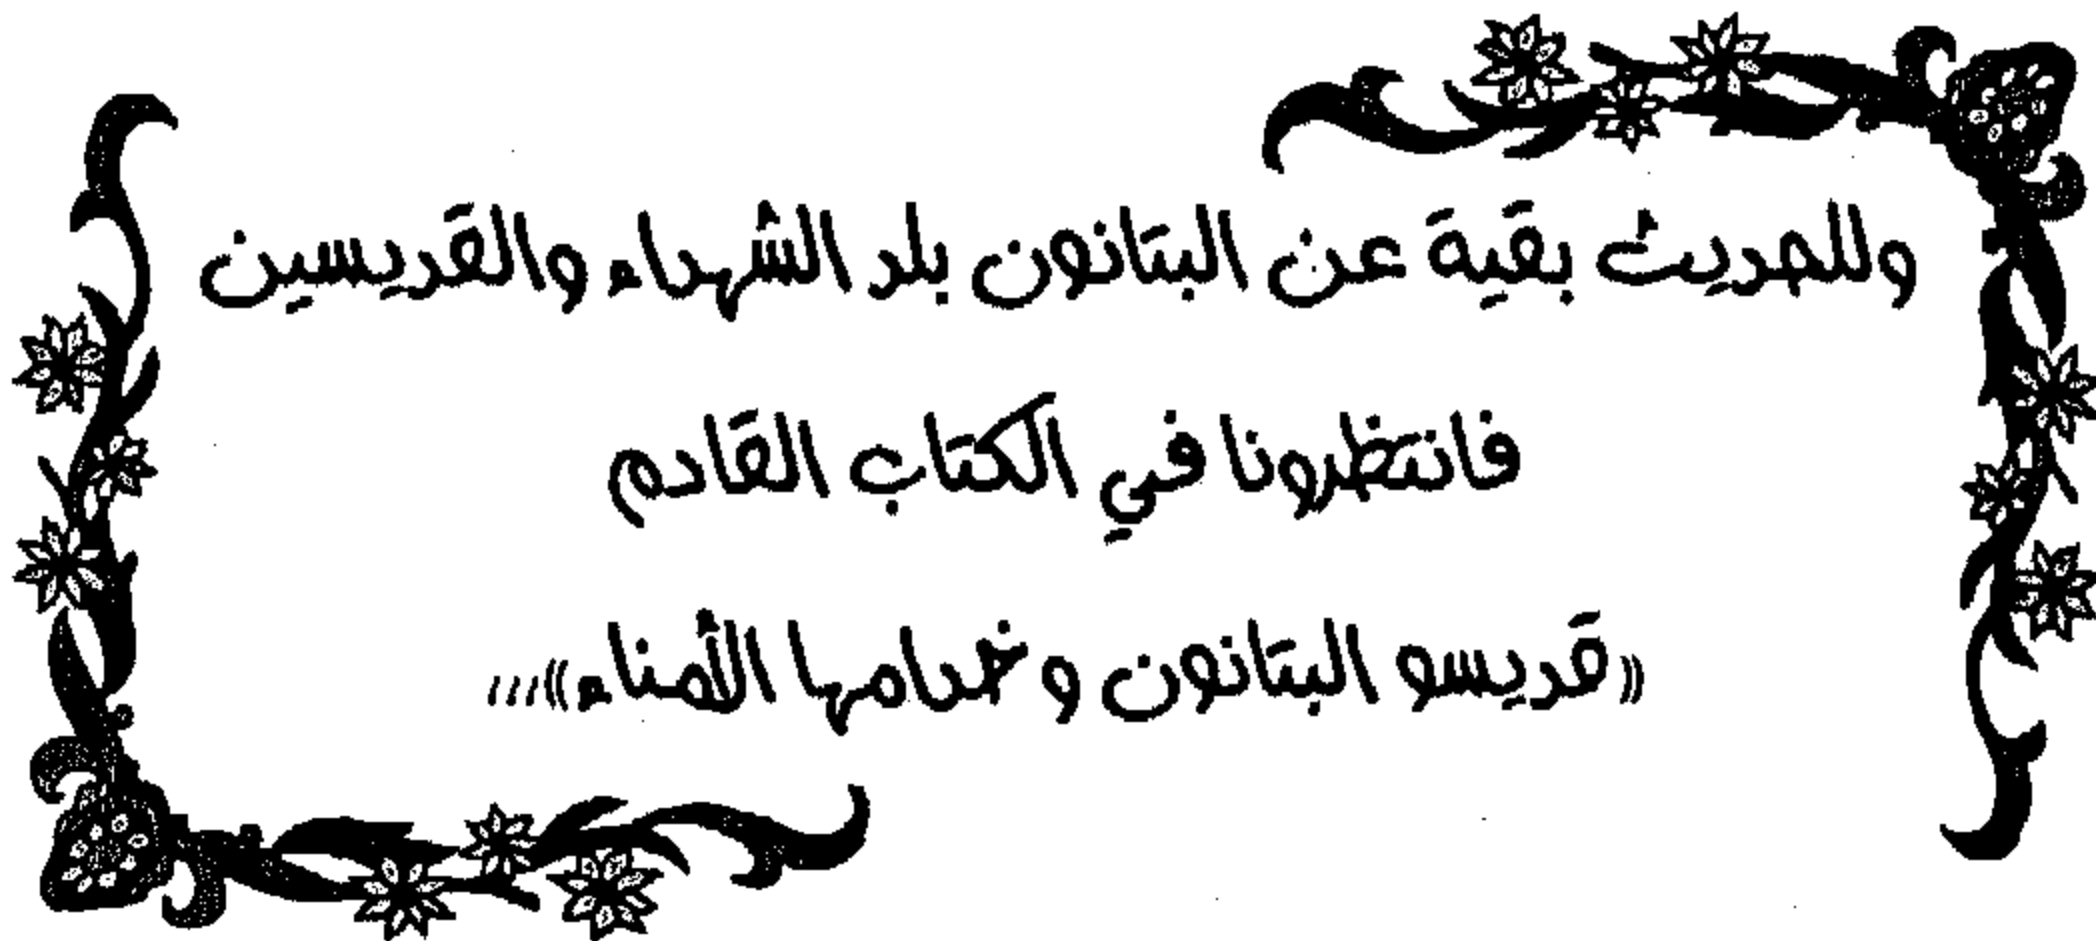 وللحديث بقية عن البتانون بلد الشهداء والقديسين
فانتظرونا في الكتاب القادم
«قديسو البتانون وخدامها الأمناء»,,,